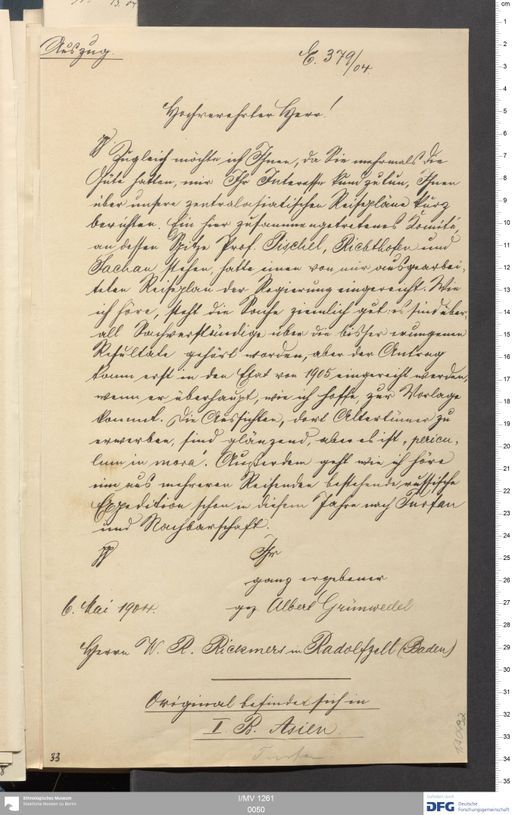 Auszug.
E. 379/04.
Hochverehrter Herr!
Zugleich möchte ich Ihnen, da Sie mehrmals die
Güte hatten, mir Ihr Interesse kundzutun, Ihnen
über unsere zentralasiatischen Reisepläne kurz
berichten. Ein hier zusammengetretenes Komité,
an dessen Spitze Prof. Pischel, Richthofen und
Sachau, stehen, hatte einen von mir ausgearbei-
teten Reiseplan der Regierung eingereicht. Wie
ich höre, steht die Sache ziemlich gut: es sind über
all Sachverständige über die bisher errungenen
Resultate gehört worden, aber der Antrag
kann erst in den Etat von 1905 eingereicht werden,
wenn er überhaupt, wie ich hoffe, zur Vorlage
kommt. Die Aussichten, dort Altertümer zu
erwerben, sind glänzend, aber es ist "pericu-
lum in mora". Außerdem geht wie ich höre
eine aus mehreren Reisenden bestehende russische
Expedition schon in diesem Jahre nach Turfan
und Nachbarschaft.
Ihr
ganz ergebener
6. Mai 1904. gez Albert Grünwedel
Herrn W. R. Rickmers in Radolfzell (Baden)
Original befindet sich in
I. B. Asien
Turfan
33
Ethnologisches Museum
Staatliche Museen zu Berlin
I/MV 1261
0050
gefördert durch
DFG Deutsche
Forschungsgemeinschaft